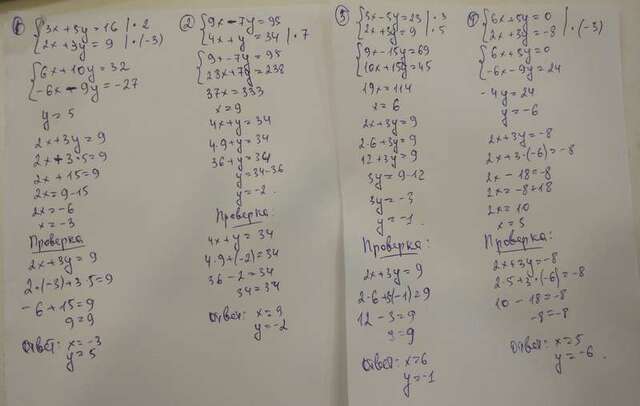 ① { 3x + 5y = 16 | · 2
2x + 3y = 9 | · (-3)
{ 6x + 10y = 32
-6x - 9y = -27
y = 5
2x + 3y = 9
2x + 3 · 5 = 9
2x + 15 = 9
2x = 9 - 15
2x = -6
x = -3
Проверка
2x + 3y = 9
2 · (-3) + 3 · 5 = 9
-6 + 15 = 9
9 = 9
Ответ: x = -3
y = 5
② { 9x - 7y = 95
4x + y = 34 | · 7
{ 9x - 7y = 95
28x + 7y = 238
37x = 333
x = 9
4x + y = 34
4 · 9 + y = 34
36 + y = 34
y = 34 - 36
y = -2.
Проверка:
4x + y = 34
4 · 9 + (-2) = 34
36 - 2 = 34
34 = 34
Ответ: x = 9
y = -2
③ { 3x - 5y = 23 | · 3
2x + 3y = 9 | · 5
{ 9x - 15y = 69
10x + 15y = 45
19x = 114
x = 6
2x + 3y = 9
2 · 6 + 3y = 9
12 + 3y = 9
3y = 9 - 12
3y = -3
y = -1.
Проверка:
2x + 3y = 9
2 · 6 + 3(-1) = 9
12 - 3 = 9
9 = 9
Ответ: x = 6
y = -1
④ { 6x + 5y = 0
2x + 3y = -8 | · (-3)
{ 6x + 5y = 0
-6x - 9y = 24
-4y = 24
y = -6
2x + 3y = -8
2x + 3 · (-6) = -8
2x - 18 = -8
2x = -8 + 18
2x = 10
x = 5
Проверка:
2x + 3y = -8
2 · 5 + 3 · (-6) = -8
10 - 18 = -8
-8 = -8
Ответ: x = 5
y = -6.